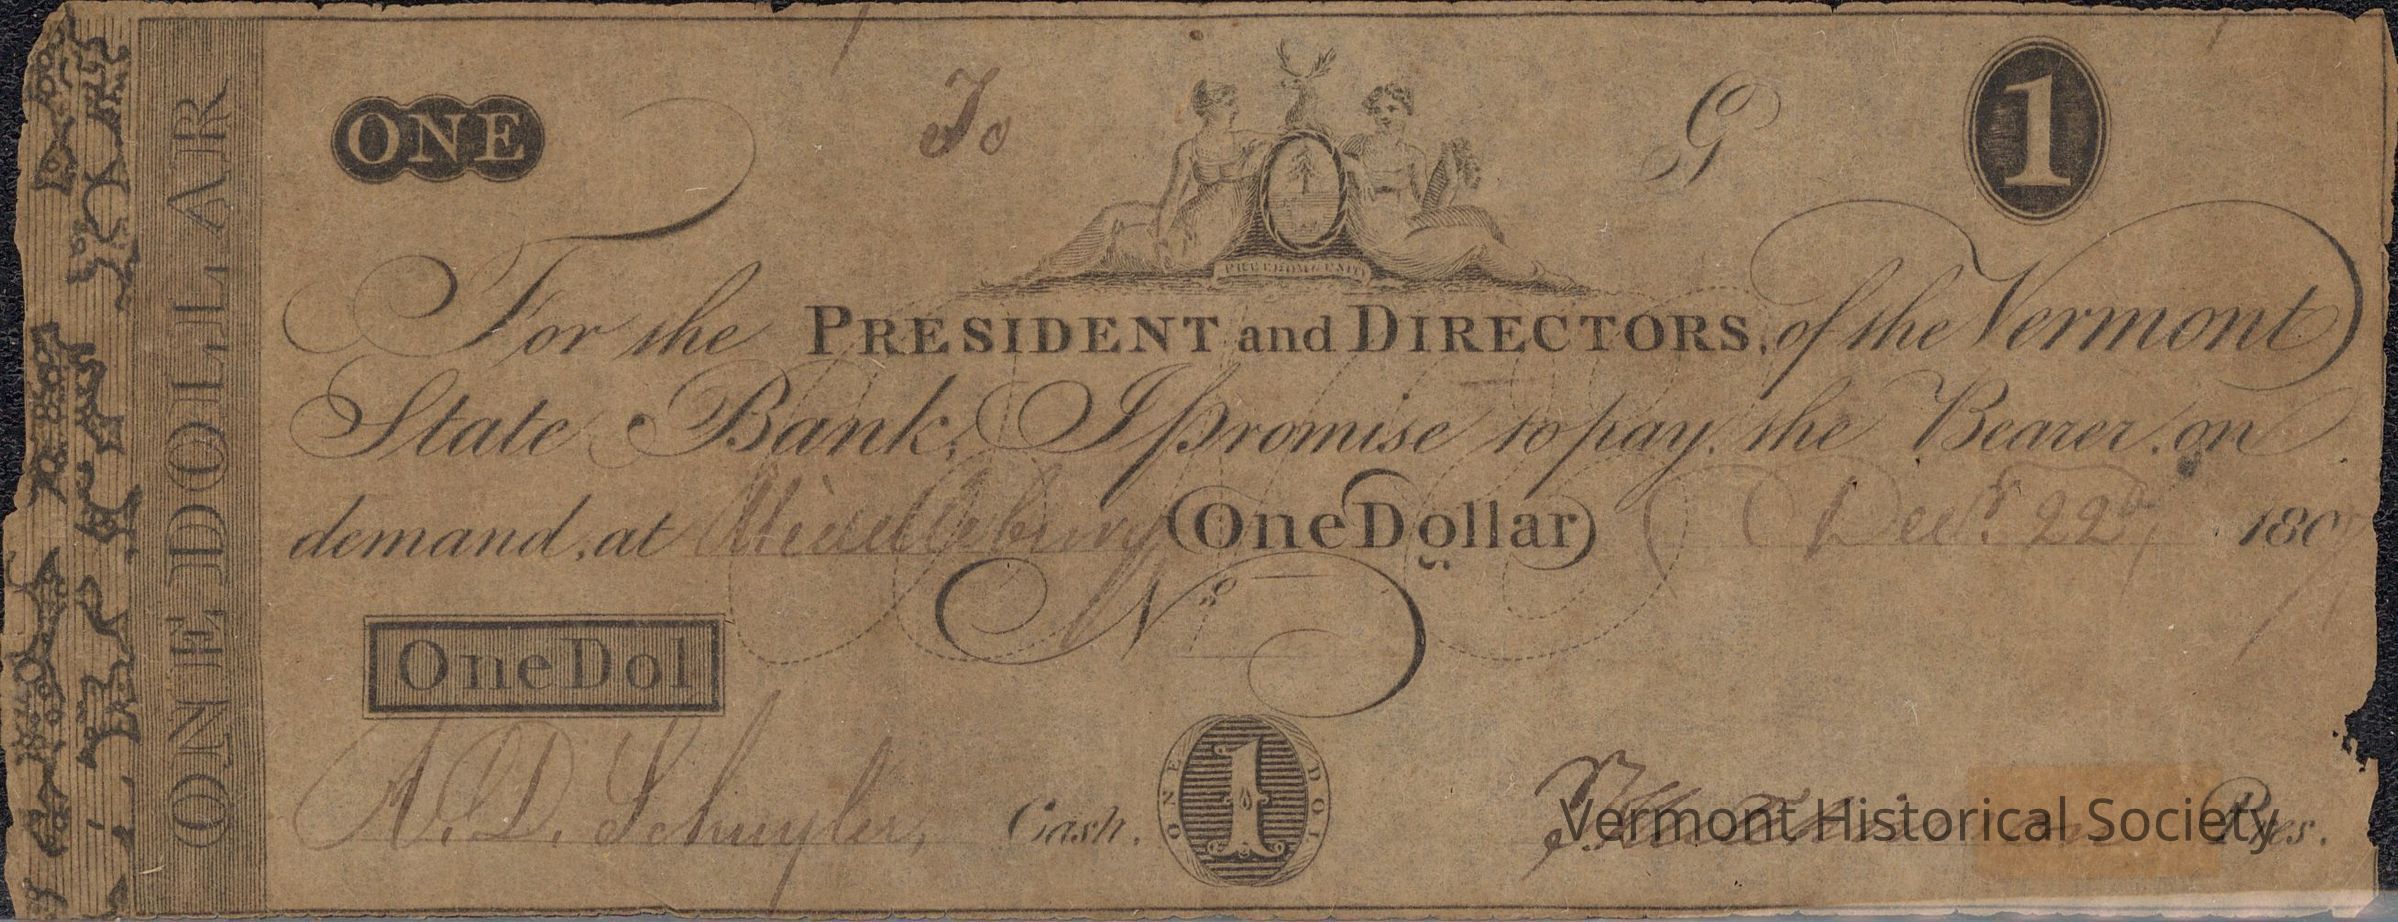 ONE To G 1
FREEDOM & UNITY
For the PRESIDENT and DIRECTORS, of the Vermont
State Bank, I promise to pay, the Bearer, on
demand, at Middlebury (One Dollar) Decr. 22d, 1807
No
One Dol
A. D. Schuyler, Cash. ONE 1 DOL Pres.
ONE DOLLAR
Vermont Historical Society